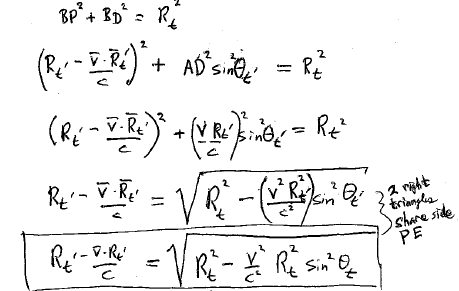 BP² + BD² = R_t²
(R_t' - v̄·R̄_t'/c)² + AD² sin²θ_t' = R_t²
(R_t' - v̄·R̄_t'/c)² + (v R_t'/c)² sin²θ_t' = R_t²
R_t' - v̄·R̄_t'/c = √(R_t² - (v² R_t'²/c²) sin²θ_t')
2 right
triangles
share side
PE
R_t' - v̄·R̄_t'/c = √(R_t² - v²/c² R_t² sin²θ_t)